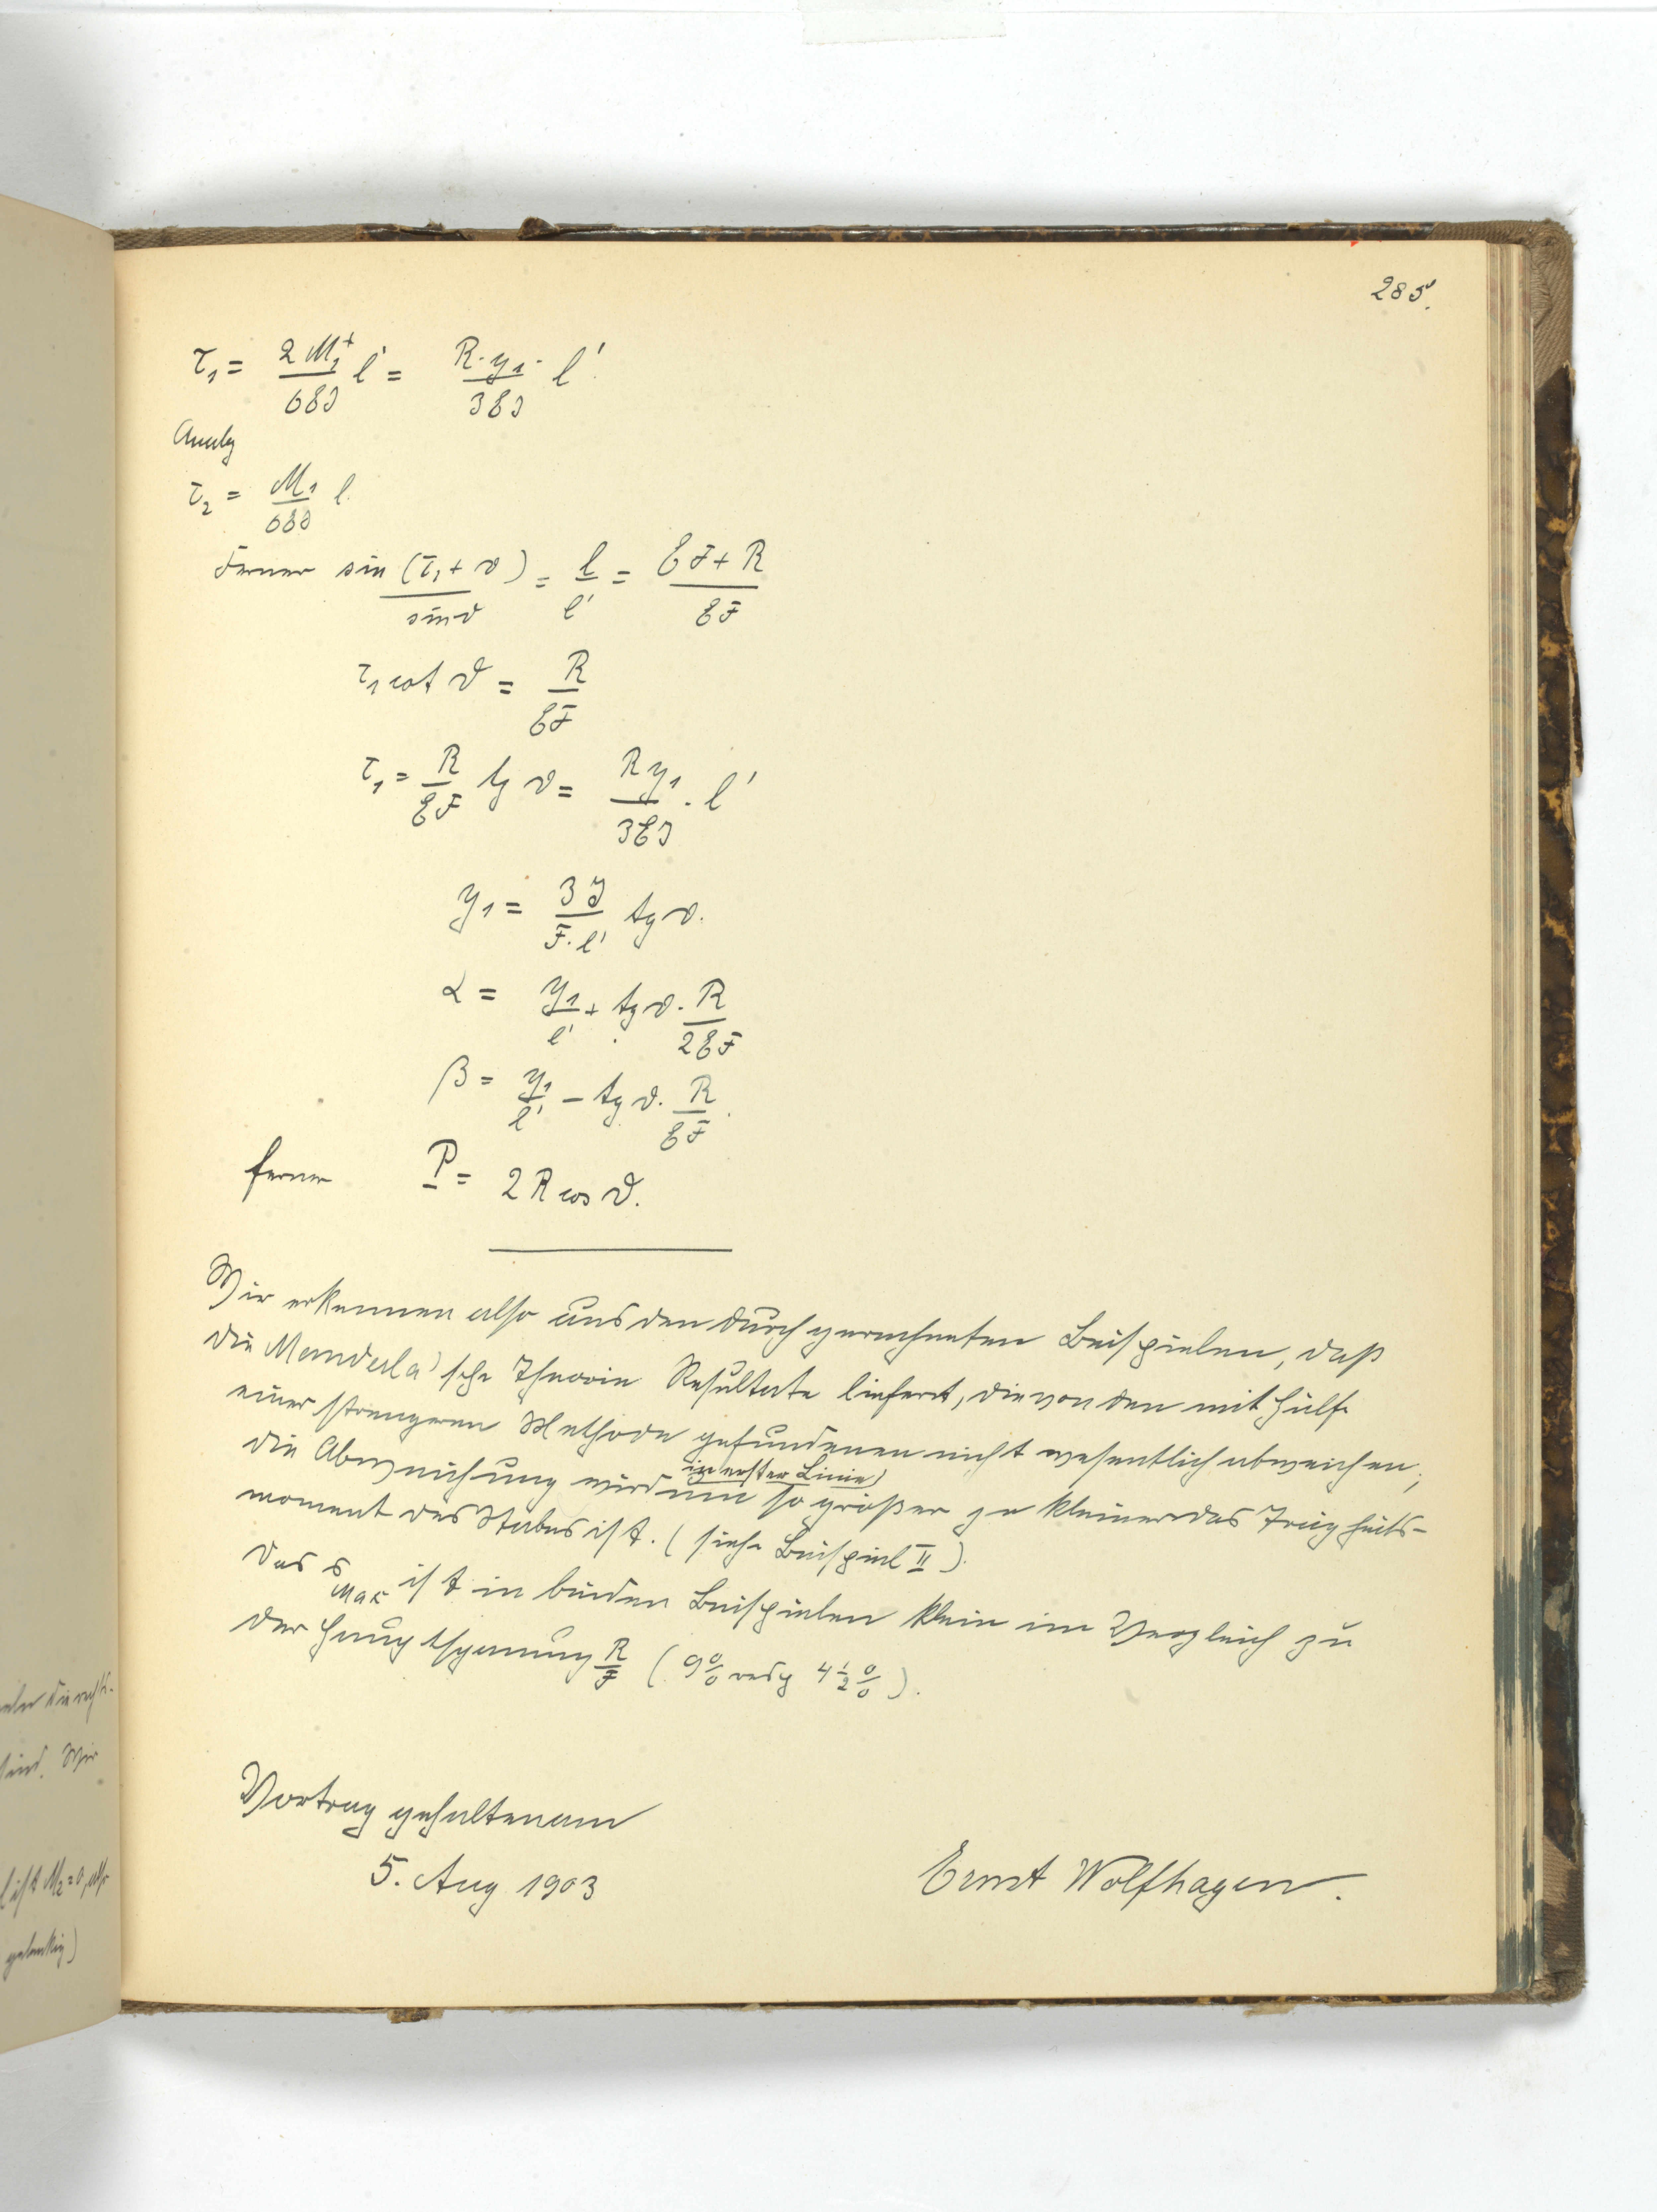 285.
τ₁ = 2 M₁⁺/6EJ l' = R·y₁·/3EJ l'.
Analg
τ₂ = M₁/6EJ l.
Ferner sin (τ₁ + ϑ)/sin ϑ = l/l' = EF + R/EF
τ₁ cot ϑ = R/EF
τ₁ = R/EF tg ϑ = R y₁/3EJ · l'
y₁ = 3J/F·l' tg ϑ.
α = y₁/l' + tg ϑ · R/2EF
β = y₁/l' − tg ϑ · R/EF.
ferner P = 2 R cos ϑ.
Wir erkennen also aus den durchgerechneten Beispielen, daß
die Manderla'sche Theorie Resultate liefert, die von den mit Hülfe
einer strengeren Methode gefundenen nicht wesentlich abweichen;
in erster Linie
die Abweichung wird um so größer je kleiner das Trägheits-
moment des Stabes ist. (siehe Beispiel II).
Das σ Max ist in beiden Beispielen klein im Vergleich zu
der Hauptspannung R/F (9% resp 4½%).
Vortrag gehalten am
5. Aug 1903
Ernst Wolfhagen.
sind. Wir
ist M₂ = 0, also
gelenkig)